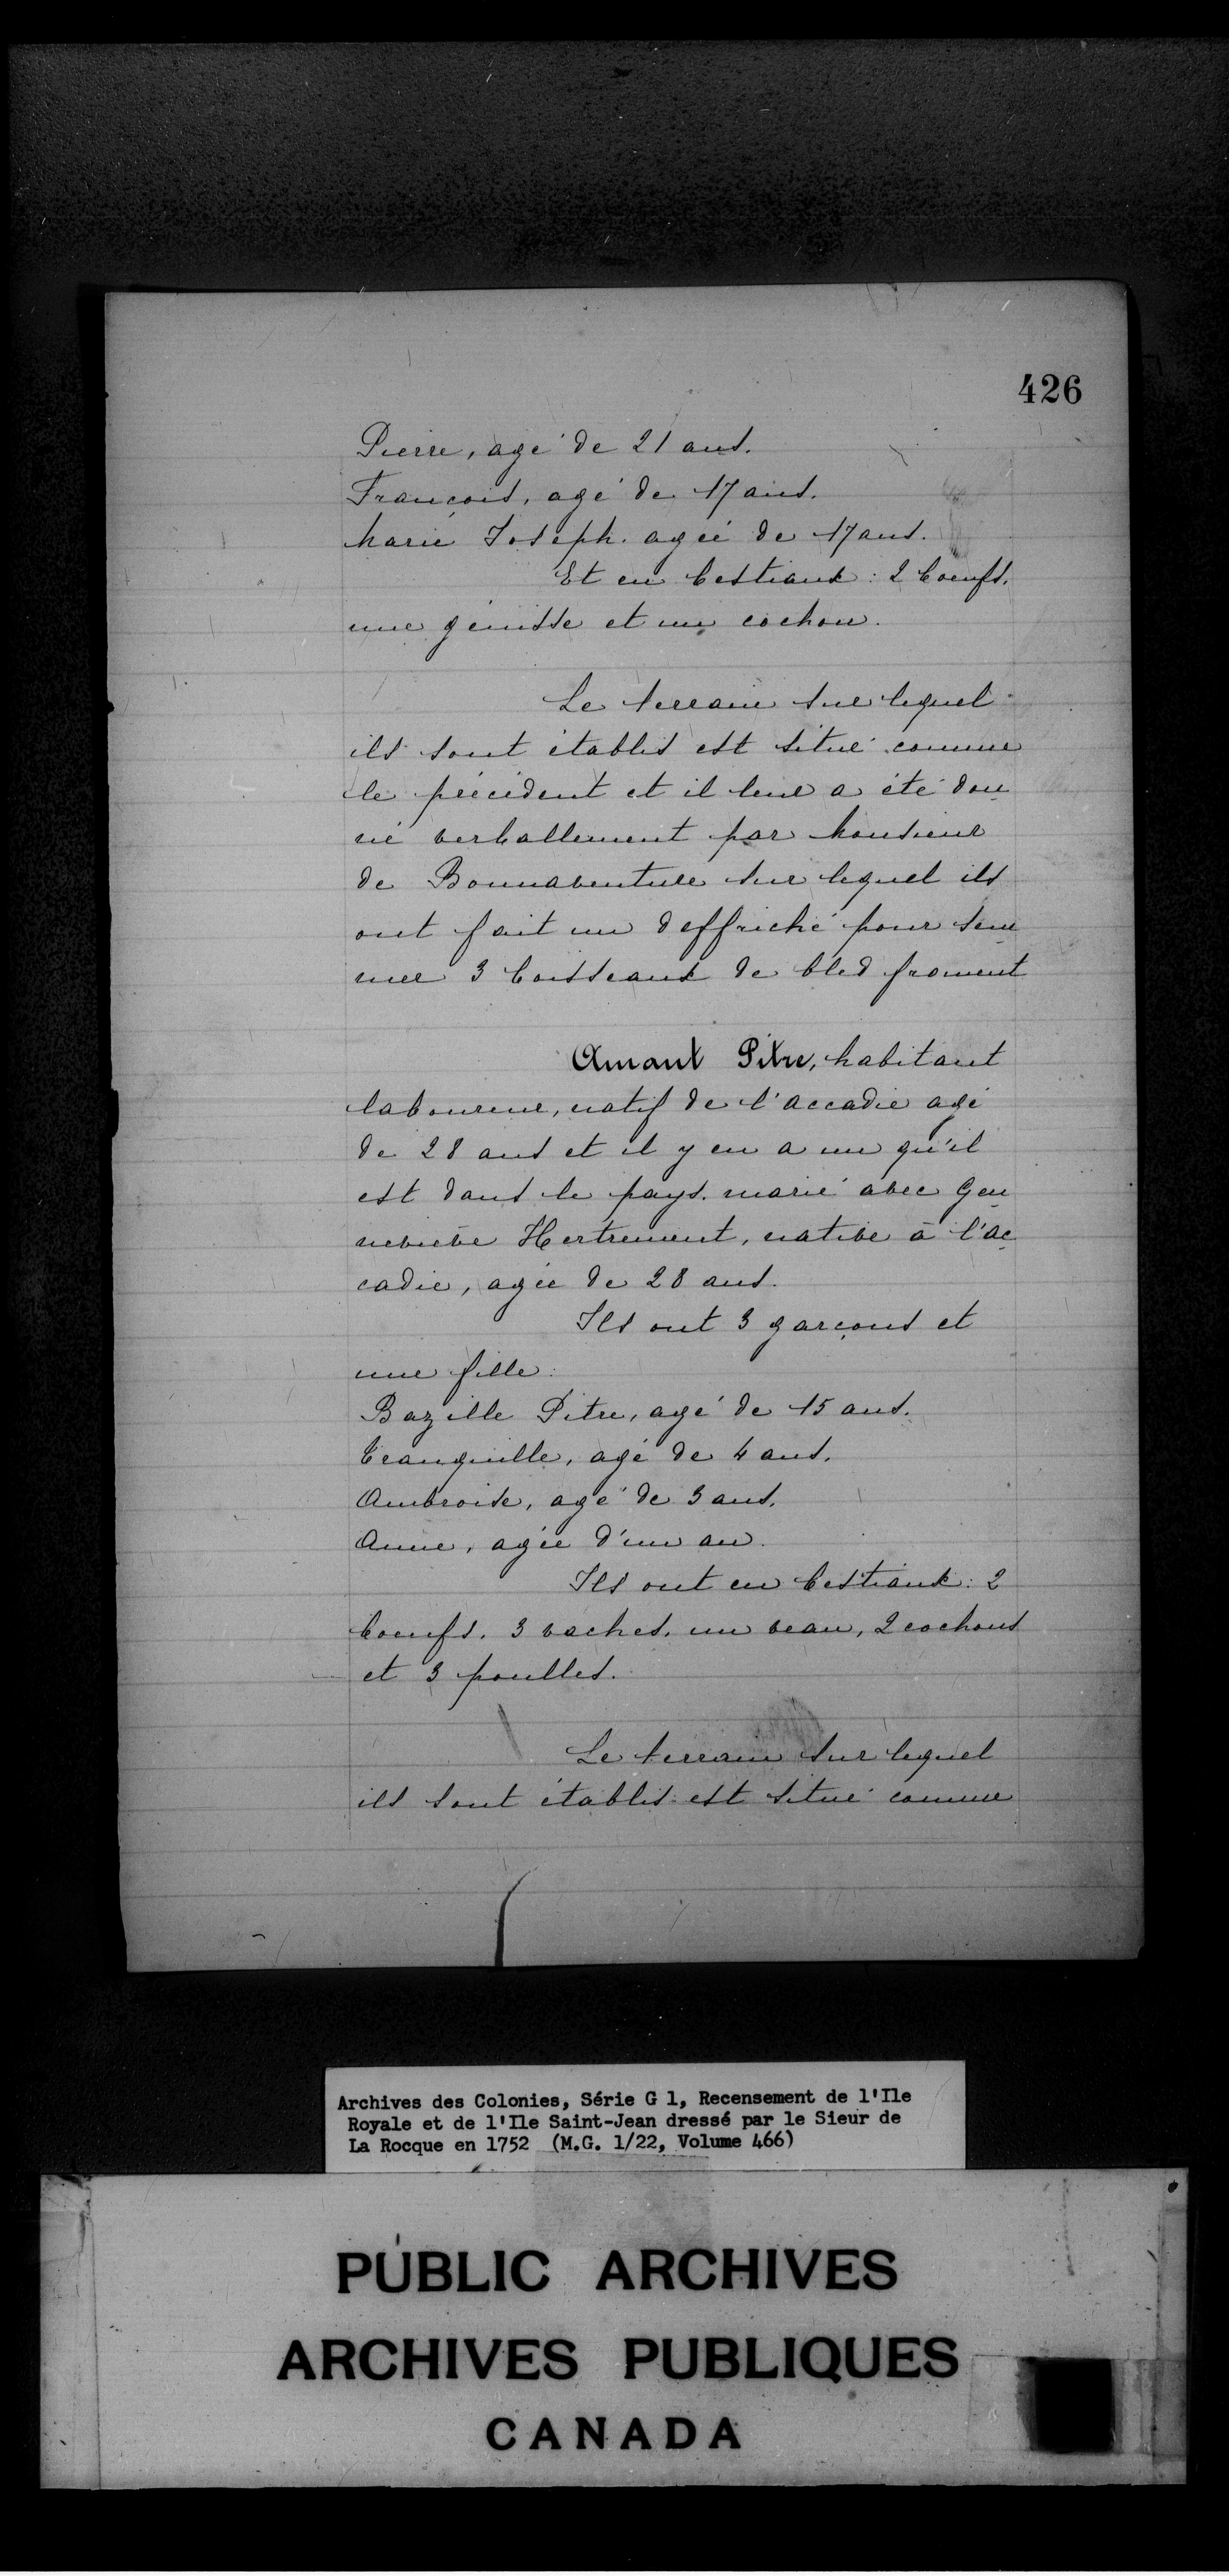 426
Pierre, agé de 21 ans.
François, agé de 17 ans.
Marie Joseph. agée de 17 ans.
Et en bestiaux : 2 boeufs,
une génisse et un cochon.
Le terrain sur lequel
ils sont établis est situé comme
le précédent et il leur a été don
né verballement par Monsieur
de Bonnaventure sur lequel ils
ont fait un deffriché pour sem
mer 3 boisseaux de bled froment
Amant Pitre, habitant
laboureur, natif de l'accadie agé
de 28 ans et il y en a un qu'il
est dans le pays. marié avec Gen
neviève Hertrement, native à l'ac
cadie, agée de 28 ans.
Ils ont 3 garçons et
une fille :
Bazille Pitre, agé de 15 ans.
Tranquille, agé de 4 ans.
Ambroise, agé de 3 ans.
Anne, agée d'un an.
Ils ont en bestiaux : 2
boeufs. 3 vaches. un veau, 2 cochons
et 3 poulles.
Le terrain sur lequel
ils sont établis est situé comme
Archives des Colonies, Série G 1, Recensement de l'Ile
Royale et de l'Ile Saint-Jean dressé par le Sieur de
La Rocque en 1752 (M.G. 1/22, Volume 466)
PUBLIC ARCHIVES
ARCHIVES PUBLIQUES
CANADA